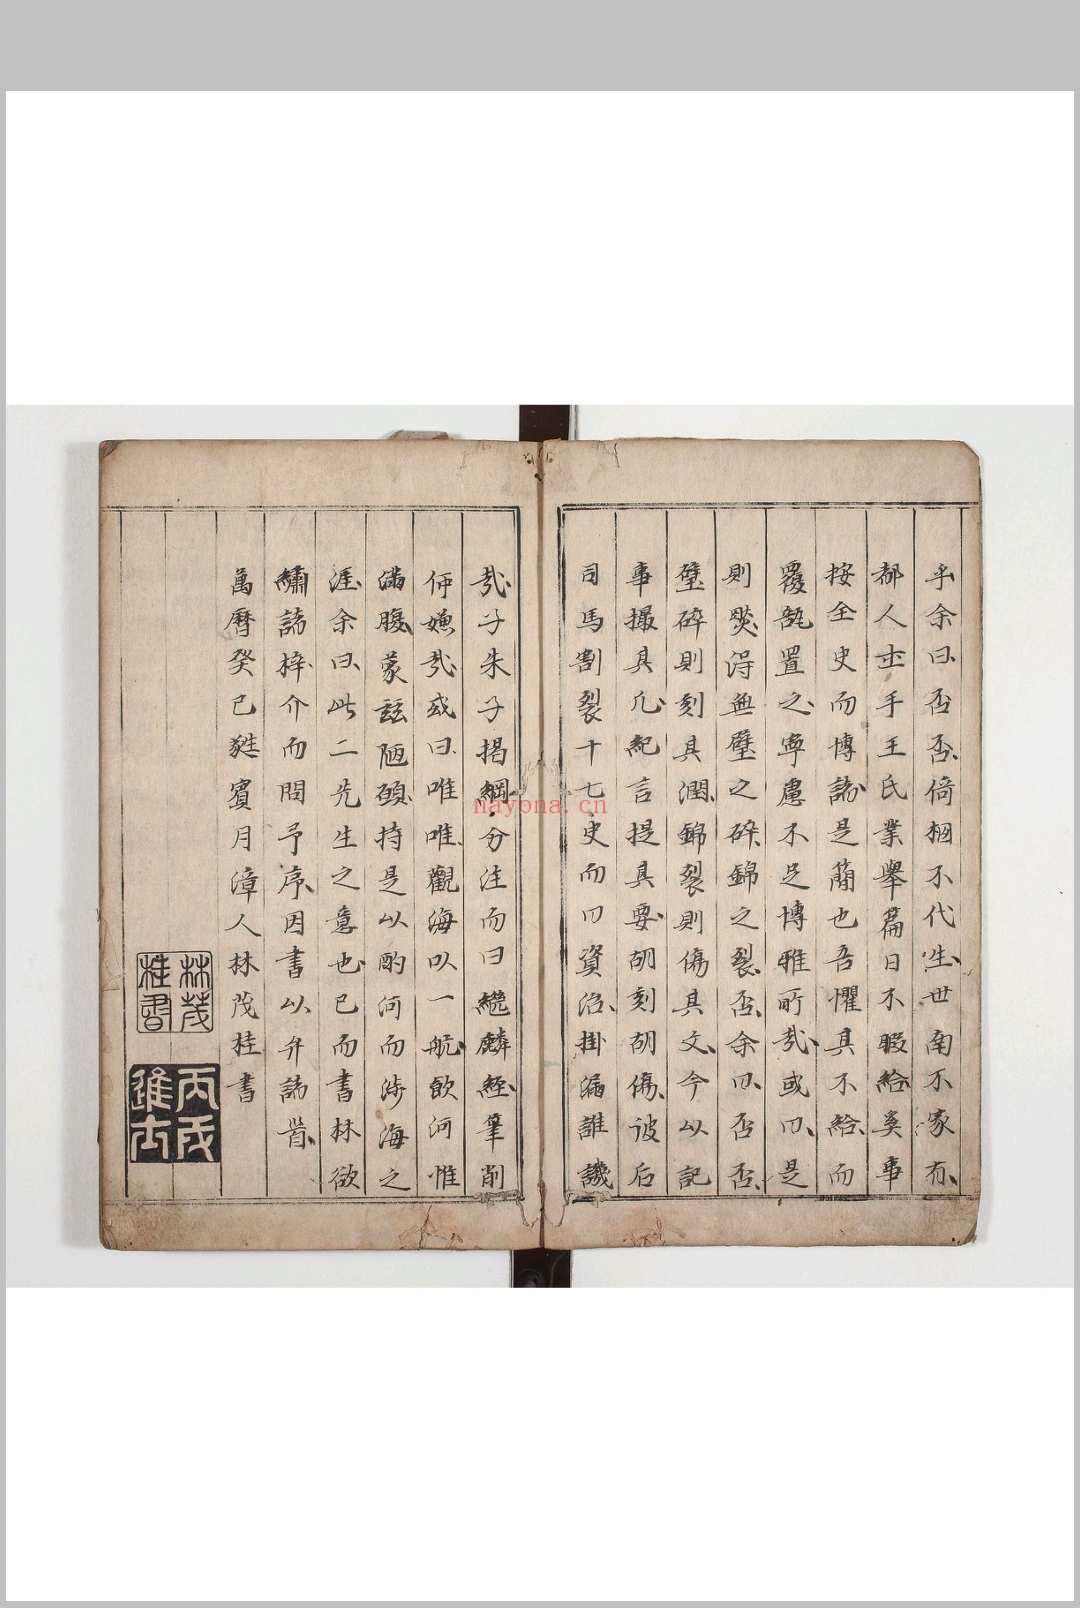 乎余曰否否倚相不代生世南不家有
都人士手王氏業舉篇日不暇給奚事
按全史而博誦是簡也吾懼其不給而
覆瓿置之寧慮不足博雅所哉或曰是
則然得無璧之碎錦之裂否余曰否否
璧碎則刻其潤錦裂則傷其文今以記
事撮其凡紀言提其要胡刻胡傷彼后
司馬割裂十七史而曰資治掛漏誰譏
哉子朱子揭綱分注而曰繼麟經筆削
何嫌哉或曰唯唯觀海以一航飲河惟
滿腹蒙茲陋顧持是以酌河而涉海之
涯余曰此二先生之意也已而書林欲
繡諸梓介而問予序因書以弁諸首
萬曆癸巳蕤賓月漳人林茂桂書
林茂桂書
丙戌進士
nayona.cn